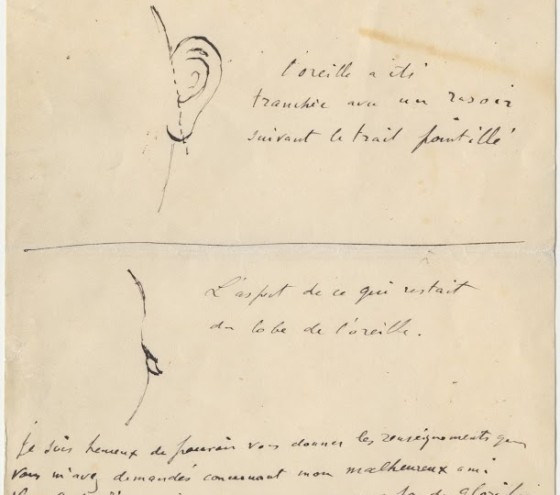 l'oreille a été
tranchée avec un rasoir
suivant le trait pointillé
L'aspect de ce qui restait
du lobe de l'oreille.
Je suis heureux de pouvoir vous donner les renseignements que
vous m'avez demandés concernant mon malheureux ami